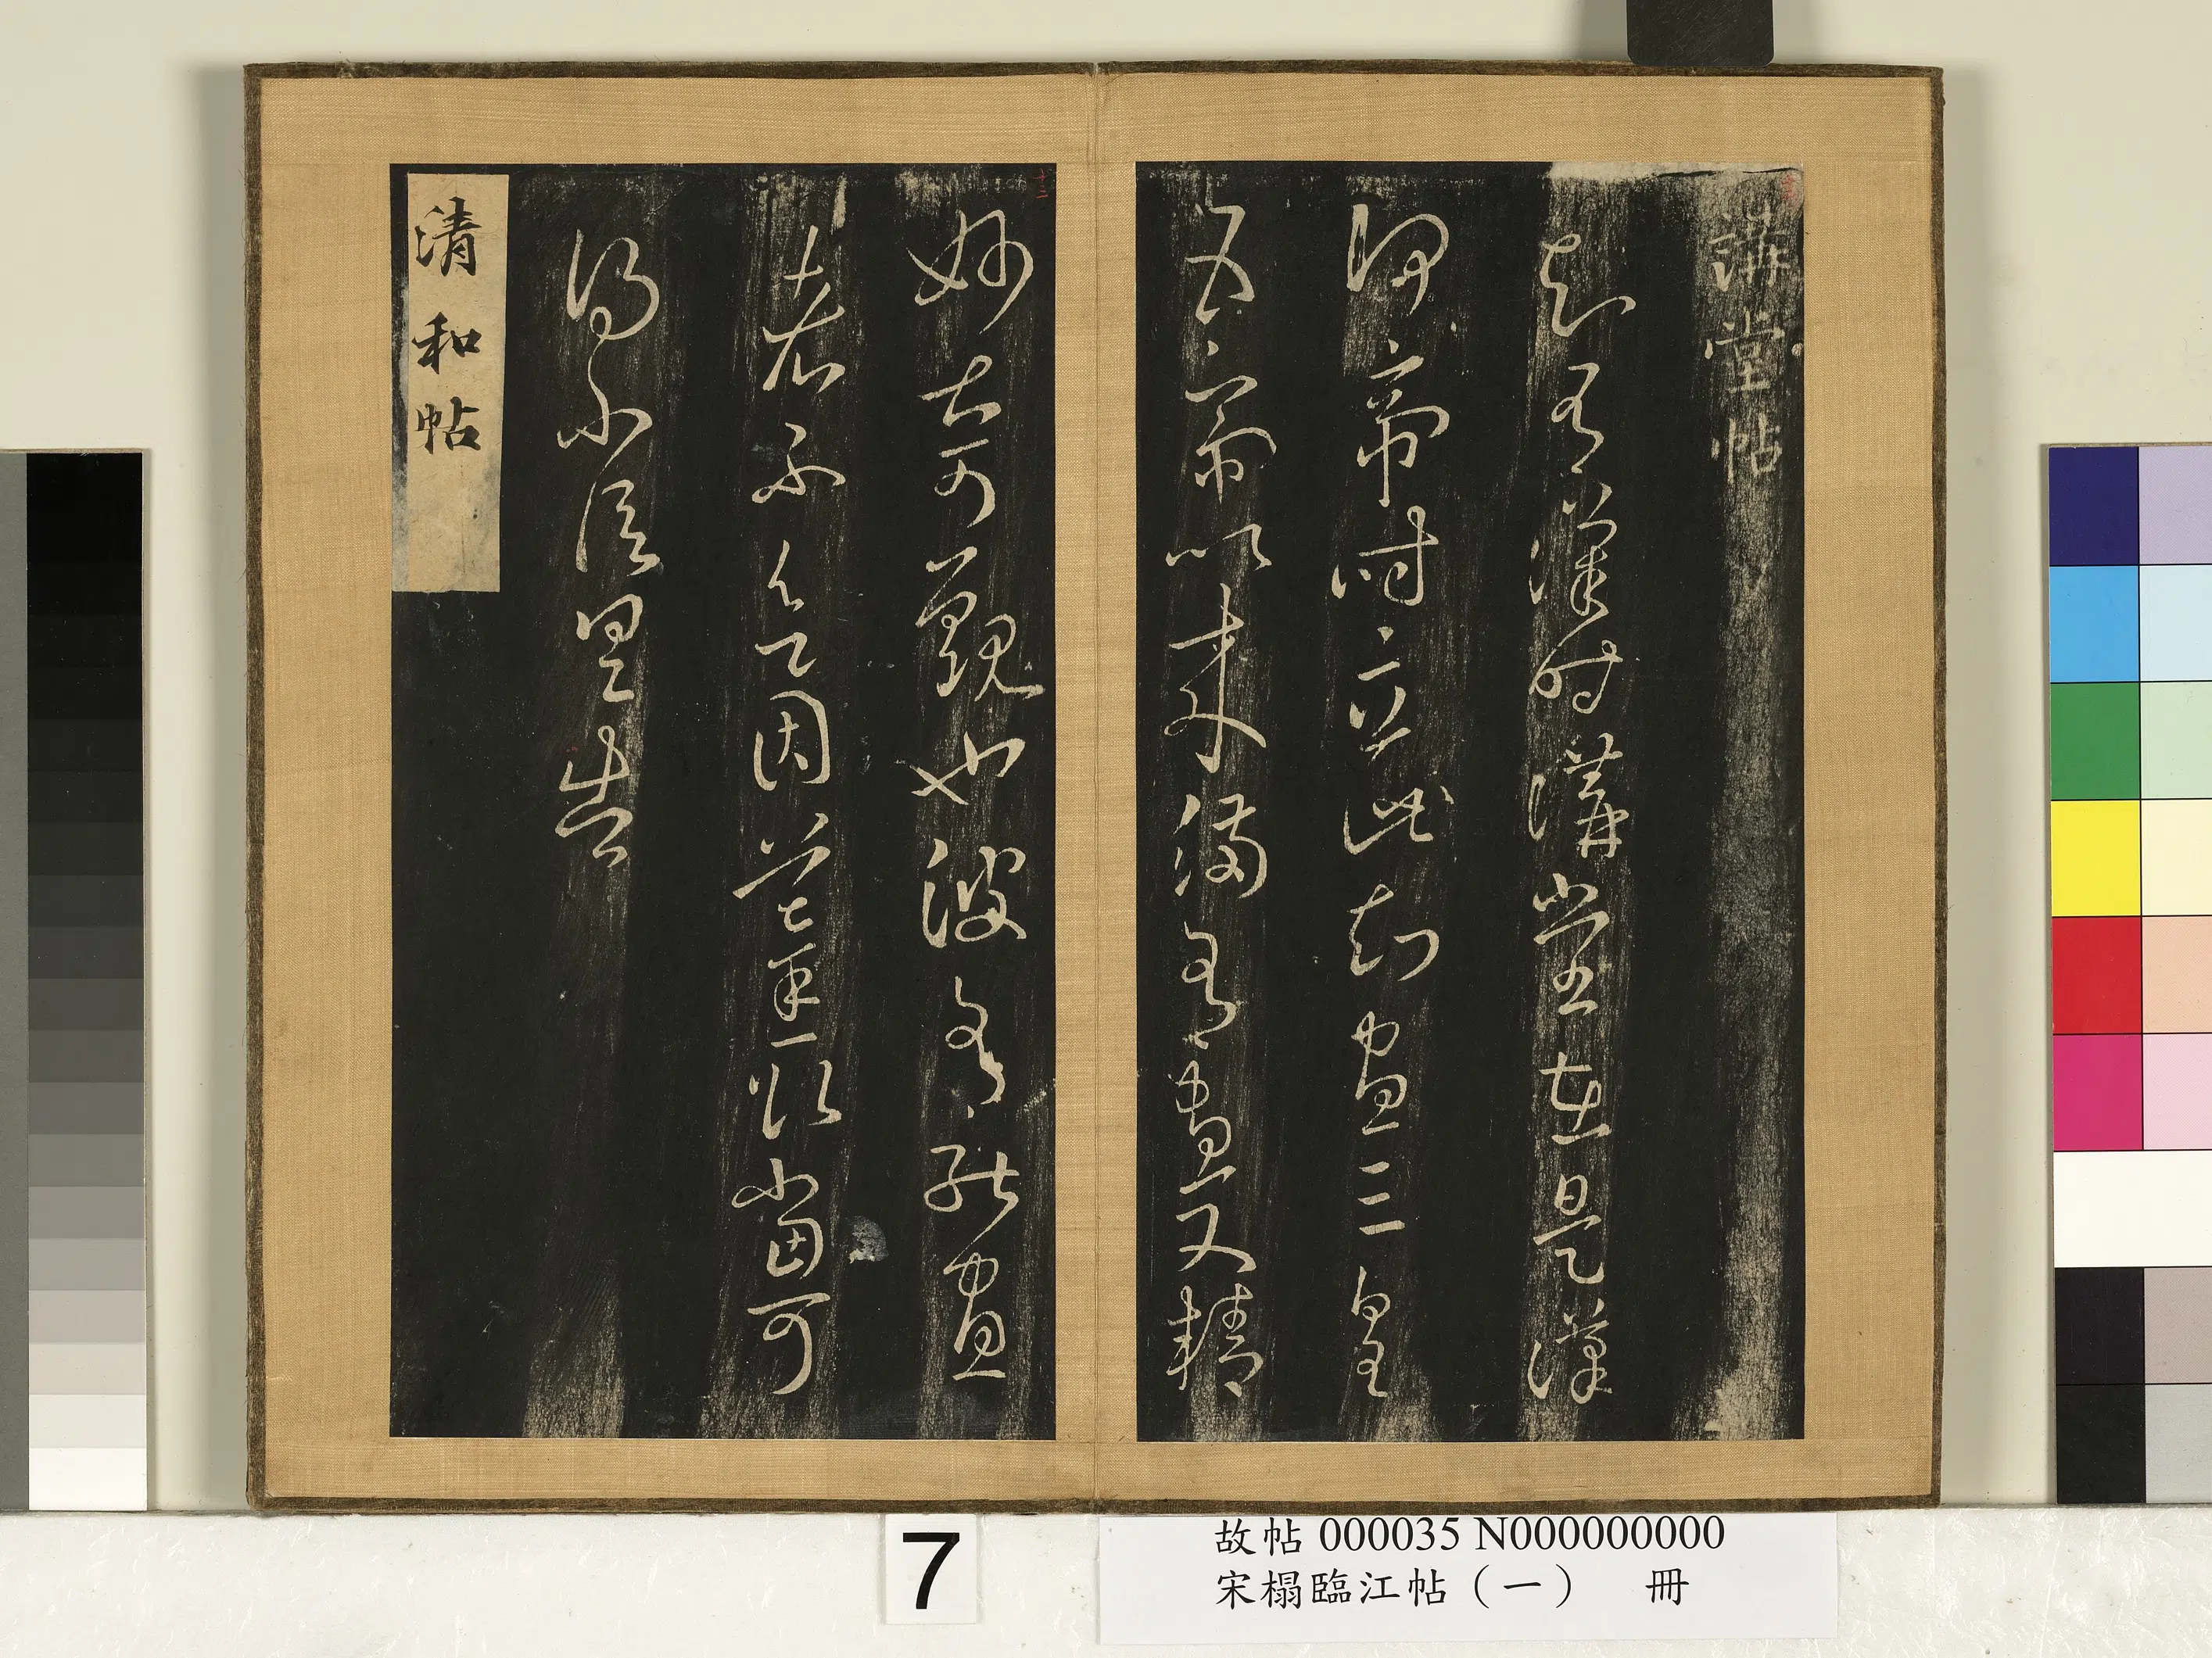 講堂帖
知有漢時講堂在是漢
何帝時立此知畫三皇
五帝以來備有畫又精
妙甚可觀也彼有能畫
者不欲因摹取當可
得不信具告
清和帖
7
故帖 000035 N000000000
宋榻臨江帖（一） 冊